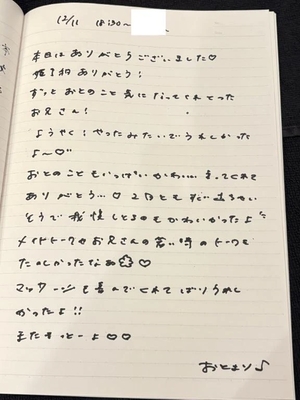 12/11 18:30〜
本日はありがとうございました♡
指名ありがとう!
ずっとおとのこと気になってくれてった
お兄さん!
ようやく!やったみたいでうれしかった
よ〜♡
おとのこともいっぱいかわ…言ってくれて
ありがとう…♡ 2日とも
そうで我慢しとるのもかわいかったよ
メイドトークやお兄さんの若い時のトークも
たのしかったなぁ♡
マッサージも喜んでくれてばりうれし
かったよ!!
またきっとーよ♡♡
おとまり♪